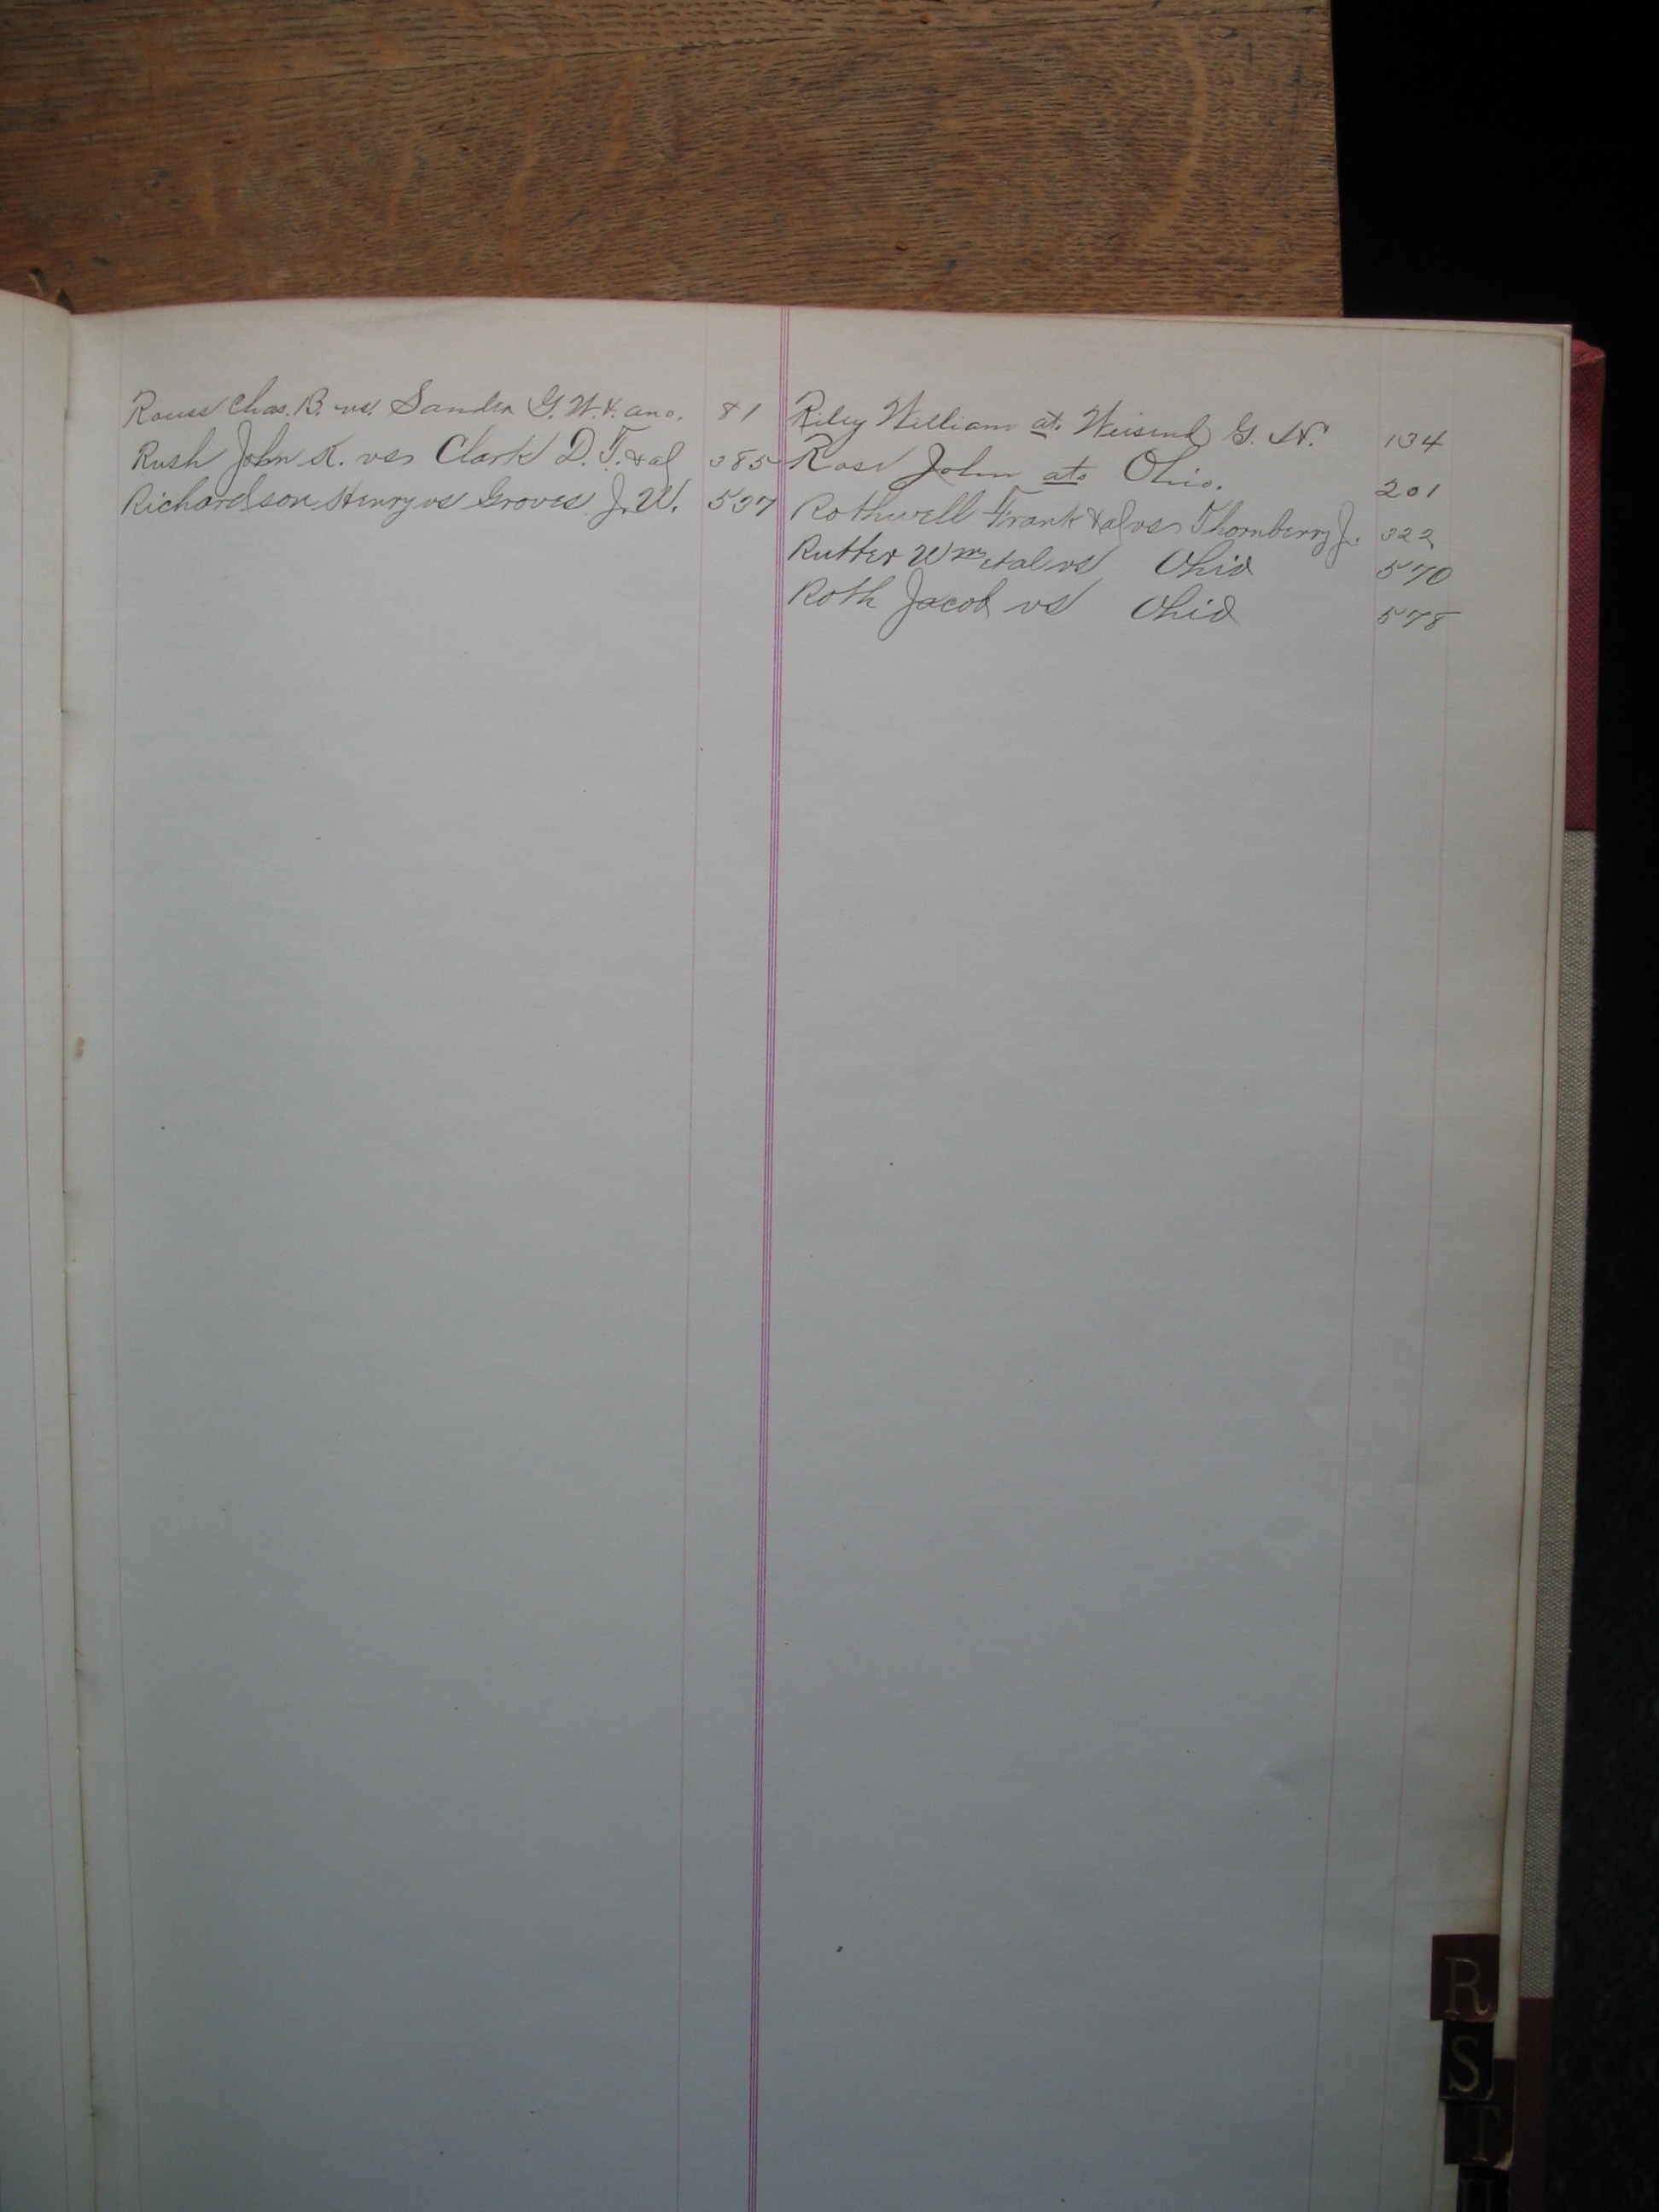 Rouss Chas. B. vs. Sander G. W. & ano. 81
Rush John R. vs Clark D. T. & al 385
Richardson Henry vs Groves J. W. 537
Riley William ats. Weisend G. W. 134
Rose John ats Ohio. 201
Rothwell Frank & al vs Thornberry J. 322
Rutter Wm & al vs Ohio 570
Roth Jacob vs Ohio 578
R
S
T